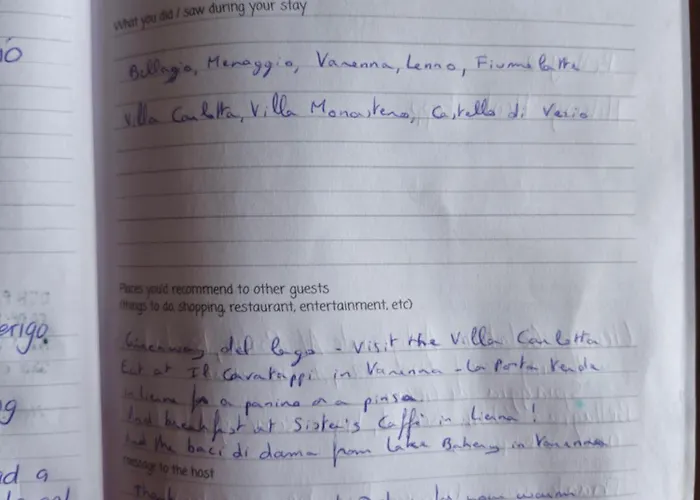 What you did / saw during your stay
Bellagio, Menaggio, Varenna, Lenno, Fiumelatte
Villa Carlotta, Villa Monastero, Castello di Vezio
Places you'd recommend to other guests
(things to do, shopping, restaurant, entertainment, etc)
Greenway del lago - Visit the Villa Carlotta
Eat at Il Cavatappi in Varenna - La Porta Verde
in Lierna for a panino or a pinsa
And breakfast at Sister's Caffè in Lierna!
And the baci di dama from Lake Bakery in Varenna
message to the host
io
erigo.
g
d a